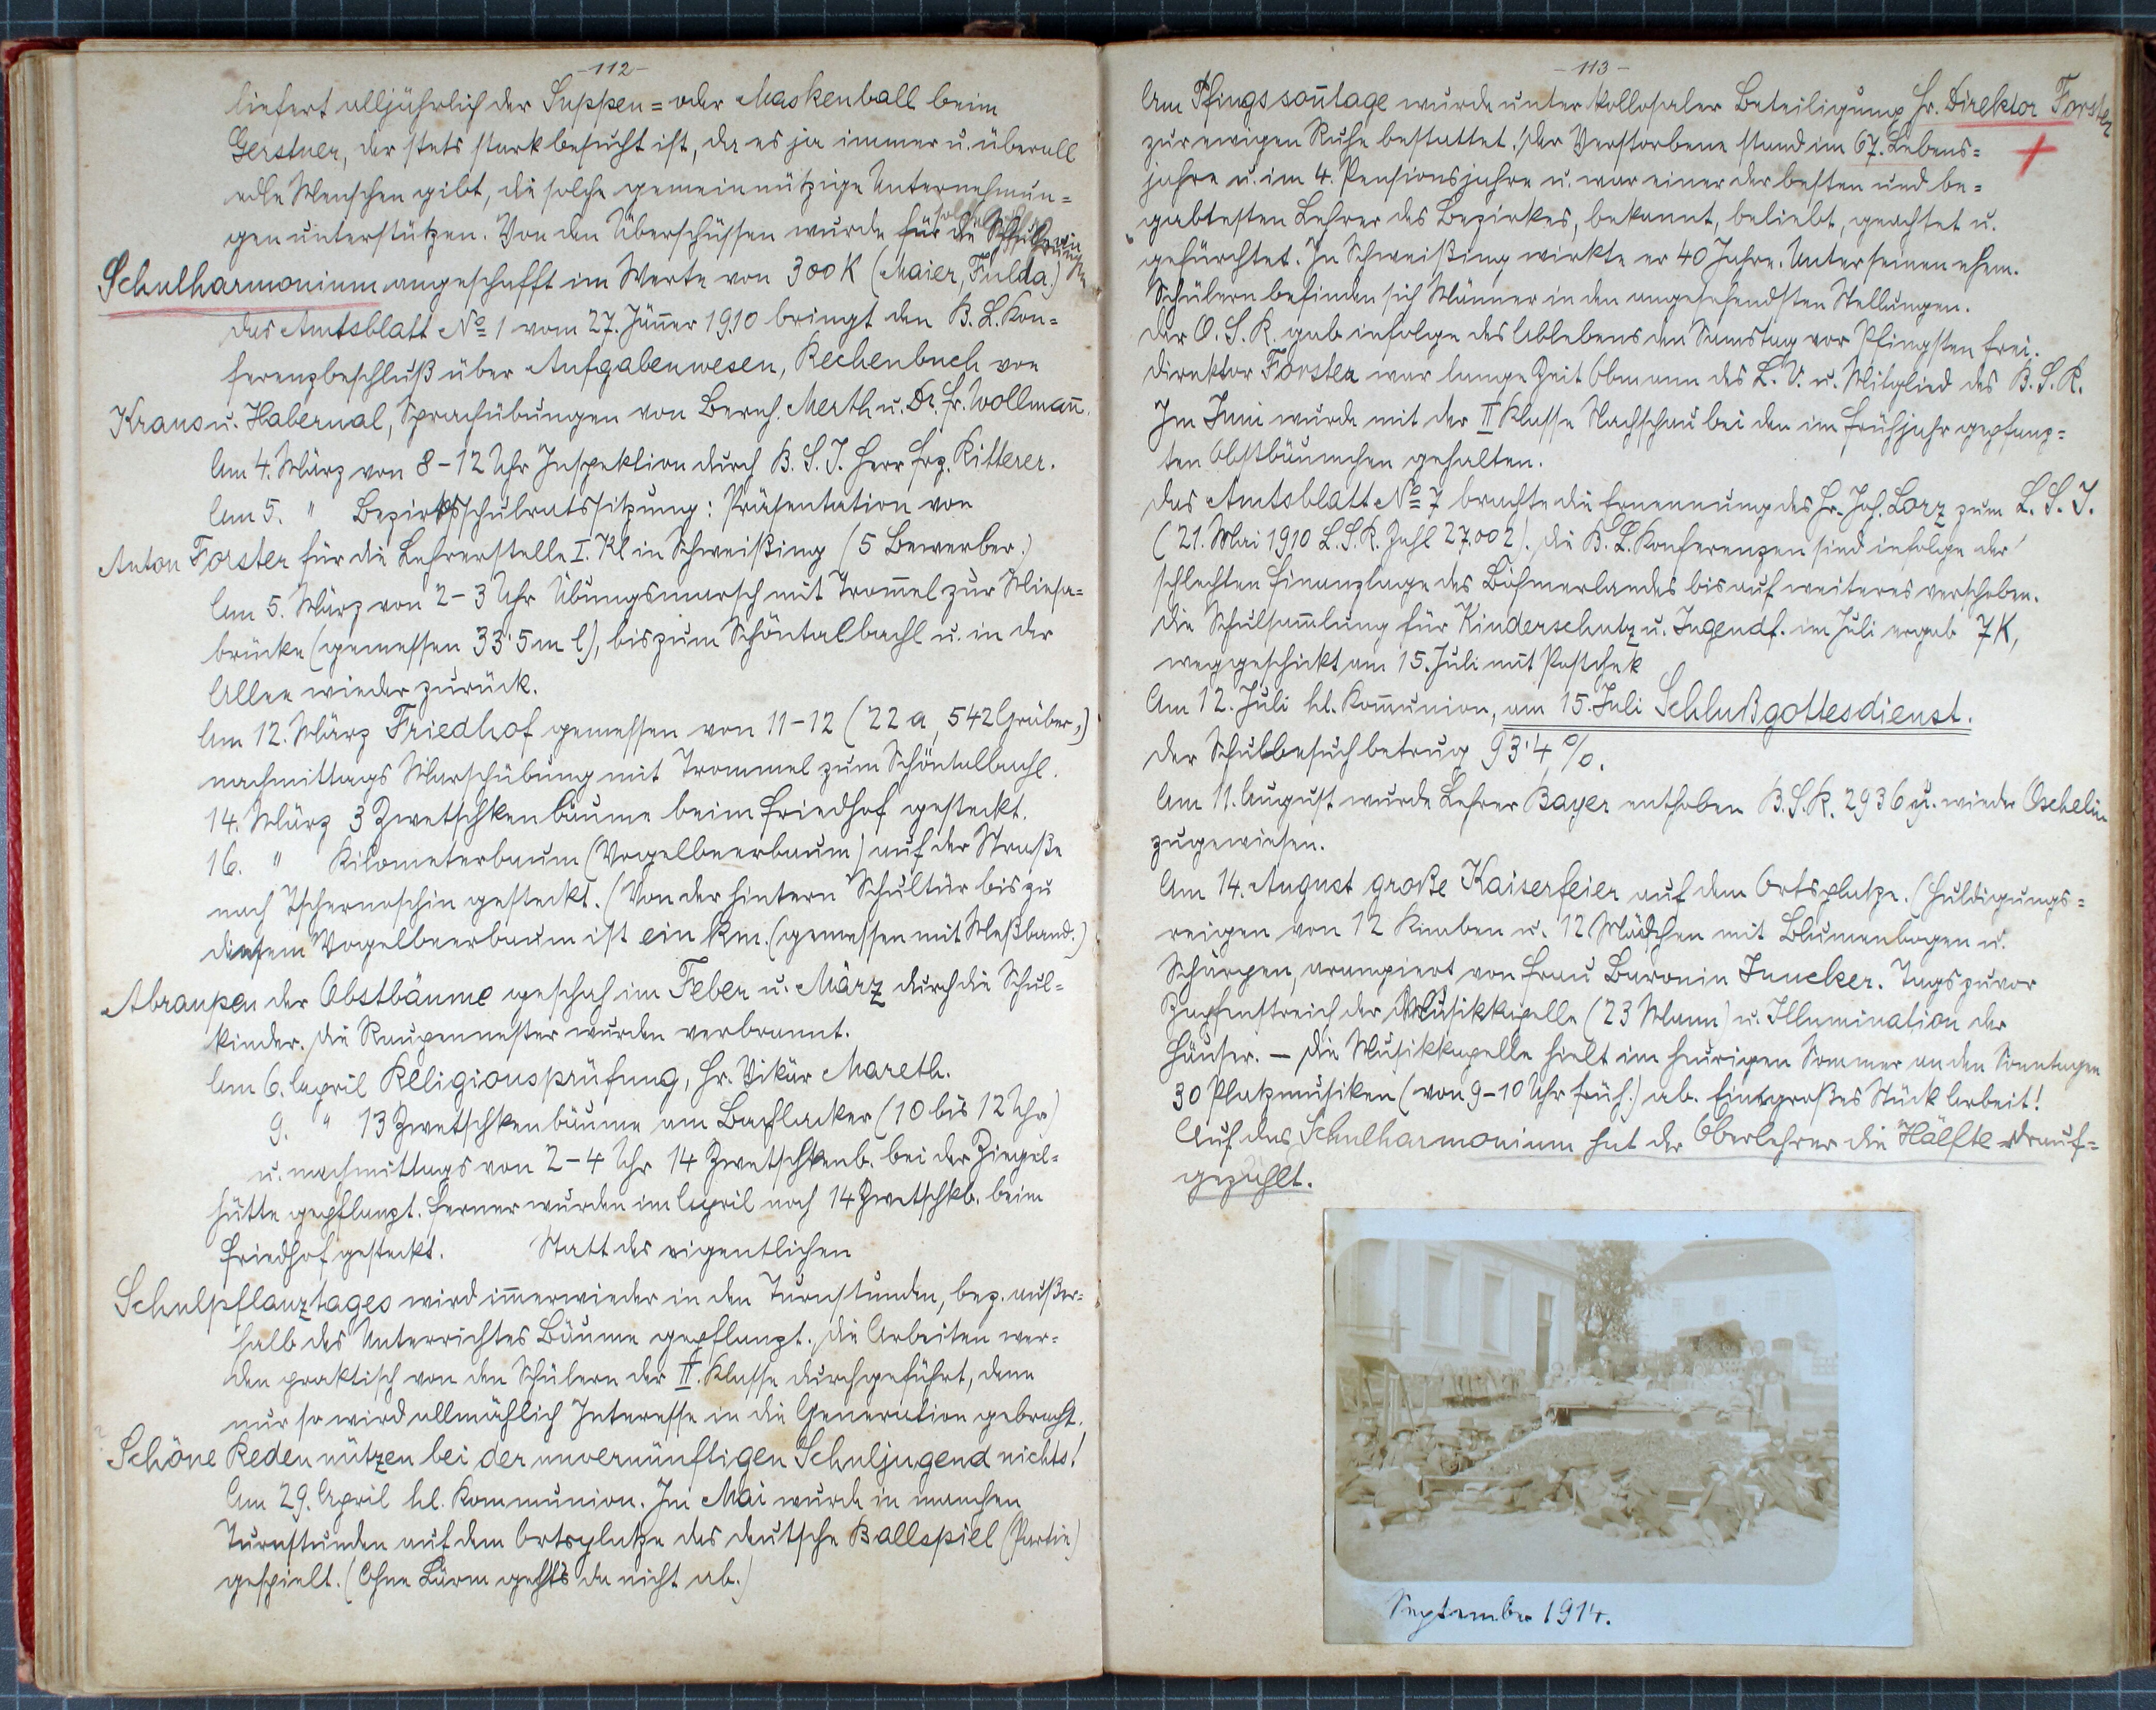 -112-
liefert alljährlich der Suppen= oder Maskenball beim
Gerstner, der stets stark besucht ist, da es ja immer u. überall
edle Menschen gibt, die solche gemeinnützige Unternehmun=
gen unterstützen. Von den Überschüssen wurde für die
Schulharmonium angeschafft im Werte von 300 K (Maier, Fulda.)
Das Amtsblatt No 1 vom 27. Jänner 1910 bringt den B. L. Kon=
ferenzbeschluß über Aufgabenwesen, Rechenbuch von
Kraus u. Habernal, Sprachübungen von Bernh. Merth u. Dr. Fr. Wollmann.
Am 4. März von 8-12 Uhr Inspektion durch B. S. I. Herr Frz. Ritterer.
Am 5. " Bezirksschulratssitzung: Präsentation von
Anton Forster für die Lehrerstelle I. Kl in Schweißing (5 Bewerber.)
Am 5. März von 2-3 Uhr Übungsmarsch mit Trommel zur Miesa=
brücke (gemessen 33·5 m l), bis zum Schöntalbachl u. in der
Allee wieder zurück.
Am 12. März Friedhof gemessen von 11-12 (22 a, 542 Gräber,)
nachmittags Marschübung mit Trommel zum Schöntalbachl.
14. März 3 Zwetschkenbäume beim Friedhof gesteckt.
16. " Kilometerbaum (Vogelbeerbaum) auf der Straße
nach Tschernoschin gesteckt. (Von der hintern Schultür bis zu
diesem Vogelbeerbaum ist ein km. (gemessen mit Meßband.)
Abraupen der Obstbäume geschah im Feber u. März durch die Schul=
kinder. Die Raupennester wurden verbrannt.
Am 6. April Religionsprüfung, Hr. Vikär Mareth.
9. " 13 Zwetschkenbäume am Bachlacker (10 bis 12 Uhr)
u. nachmittags von 2-4 Uhr 14 Zwetschkenb. bei der Ziegel=
hütte gepflanzt. Ferner wurden im April noch 14 Zwetschkb. beim
Friedhof gesteckt. Statt des eigentlichen
Schulpflanztages wird immerwieder in den Turnstunden, bez. außer=
halb des Unterrichtes Bäume gepflanzt. Die Arbeiten wer=
den praktisch von den Schülern der II. Klasse durchgeführt, denn
nur so wird allmählich Interesse in die Generation gebracht.
Schöne Reden nützen bei der unvernünftigen Schuljugend nichts!
Am 29. April hl. Kommunion. Im Mai wurde in manchen
Turnstunden auf dem Ortsplatze das deutsche Ballspiel (Partie)
gespielt. (Ohne Lärm gehts da nicht ab.)
-113-
Am Pfingssonntage wurde unter kollosaler Beteiligung Hr. Direktor Forster
zur ewigen Ruhe bestattet. Der Verstorbene stand im 67. Lebens=
jahre u. im 4. Pensionsjahre u. war einer der besten und be=
gabtesten Lehrer des Bezirkes, bekannt, beliebt, geachtet u.
gefürchtet. In Schweißing wirkte er 40 Jahre. Unter seinen ehem.
Schülern befinden sich Männer in den angesehendsten Stellungen.
Der O. S. R. gab infolge des Ablebens den Samstag vor Pfingsten frei.
Direktor Forster war lange Zeit Obmann des L. V. u. Mitglied des B. S. R.
Im Juni wurde mit der II Klasse Nachschau bei den im Frühjahr gepflanz=
ten Obstbäumchen gehalten.
Das Amtsblatt No 7 brachte die Ernennung des Hr. Joh. Lorz zum L. S. I.
(21. Mai 1910 L. S. R. Zahl 27.002). Die B. L. Konferenzen sind infolge der
schlechten Finanzlage des Böhmerlandes bis auf weiteres verschoben.
Die Schulsammlung für Kinderschutz u. Jugendf. im Juli ergab 7 K,
weggeschickt am 15. Juli mit Postchek
Am 12. Juli hl. Kommunion, am 15. Juli Schlußgottesdienst.
Der Schulbesuch betrug 93·4 %.
Am 11. August wurde Lehrer Bayer enthoben B. S. R. 2936 u. wieder Oschelin
zugewiesen.
Am 14. August große Kaiserfeier auf dem Ortsplatze. (Huldigungs=
reigen von 12 Knaben u. 12 Mädchen mit Blumenbogen u.
Schärpen, arangiert von Frau Baronin Juncker. Tags zuvor
Zapfenstreich der Musikkapelle (23 Mann) u. Illumination der
Häuser. — Die Musikkapelle hielt im heurigen Sommer an den Sonntagen
30 Platzmusiken (von 9-10 Uhr früh.) ab. Ein großes Stück Arbeit!
Auf das Schulharmonium hat der Oberlehrer die Hälfte drauf=
gezahlt.
September 1914.